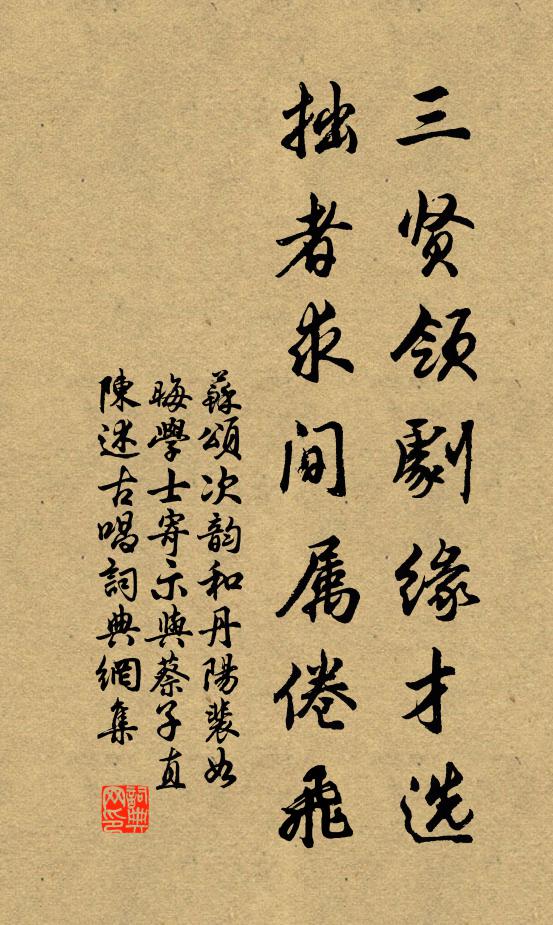 三贤领劇缘才选
拙者求间属倦飛
蘇頌次韵和丹陽裴如
晦學士寄示與蔡子直
陳述古唱詞典網集
詞典網印